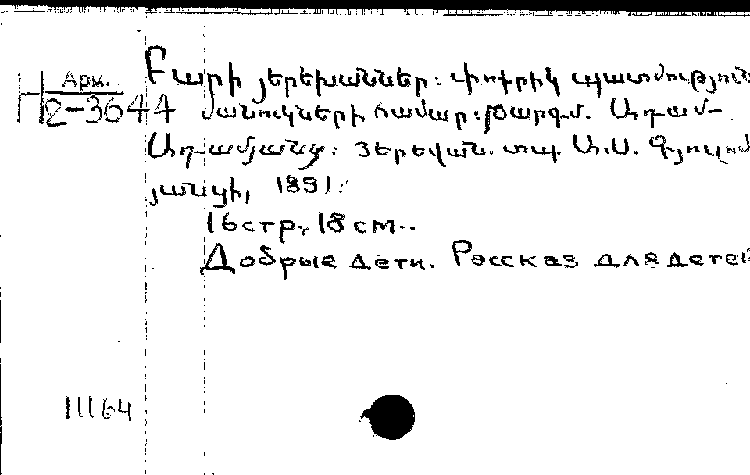 Арм.
H 2-3644
Բարի յերեխաններ: փոքրիկ պատմություն
մանուկների համար. Թարգմ. Ադամ
Ադամյանց: Յերեվան. տպ. Ս.
յանցի, 1891.
16 стр. 18 см..
Добрые дети. Рассказ для детей
11164